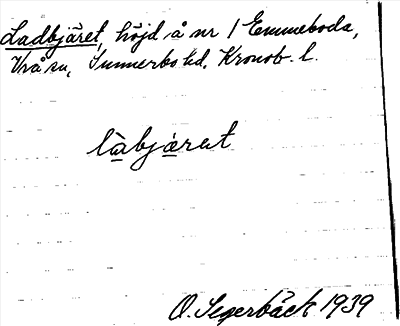 Ladbjäret, höjd å nr 1 Emmeboda,
Vrå sn, Sunnerbo hd, Kronob. l.
làbjárət
O. Segerbäck 1939